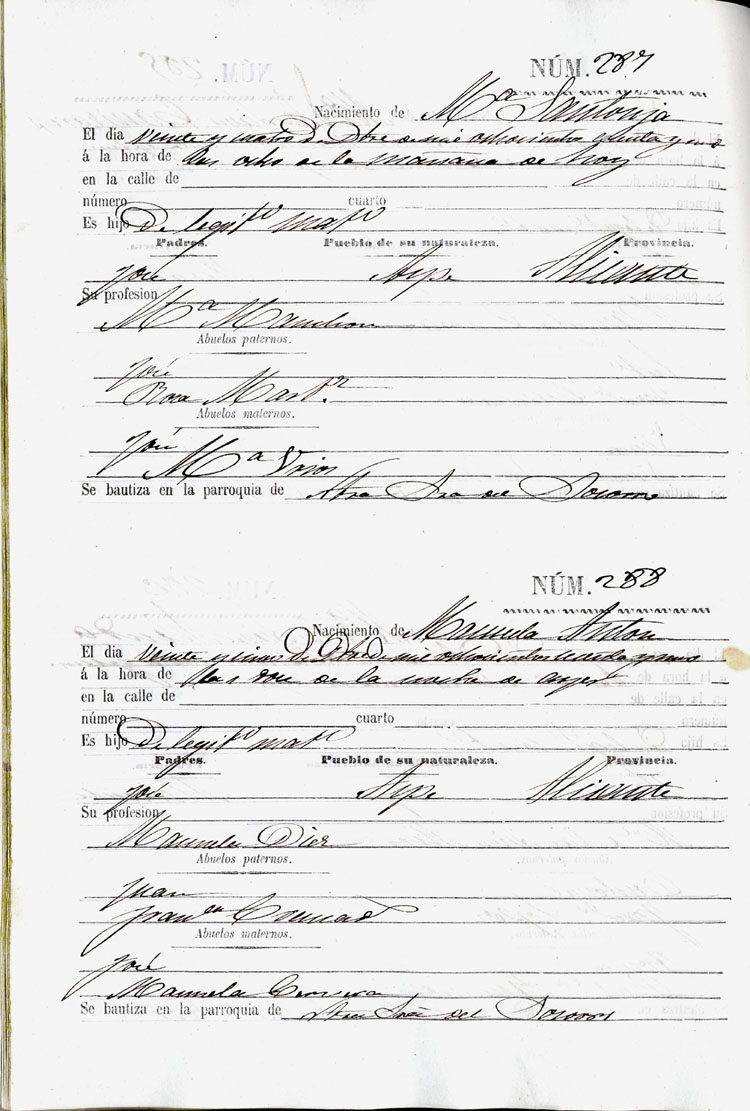 NÚM. 287
Nacimiento de Mª Santonja
El dia veinte y cuatro de Dbre de mil ochocientos y uno
á la hora de las ocho de la mañana de hoy
en la calle de
número cuarto
Es hijo De legitº matº
Padres. Pueblo de su naturaleza. Provincia.
José Aspe Alicante
Su profesion
Mª
Abuelos paternos.
José
Rosa Martz.
Abuelos maternos.
José
Mª
Se bautiza en la parroquia de Ntra Sra del Socorro
NÚM. 288
Nacimiento de Manuela Anton
El dia veinte y cinco de Dbre de mil ochocientos y uno
á la hora de las doce de la noche de ayer
en la calle de
número cuarto
Es hijo De legitº matº
Padres. Pueblo de su naturaleza. Provincia.
José Aspe Alicante
Su profesion
Manuela Diez
Abuelos paternos.
Juan
Franca
Abuelos maternos.
José
Manuela
Se bautiza en la parroquia de Ntra Sra del Socorro